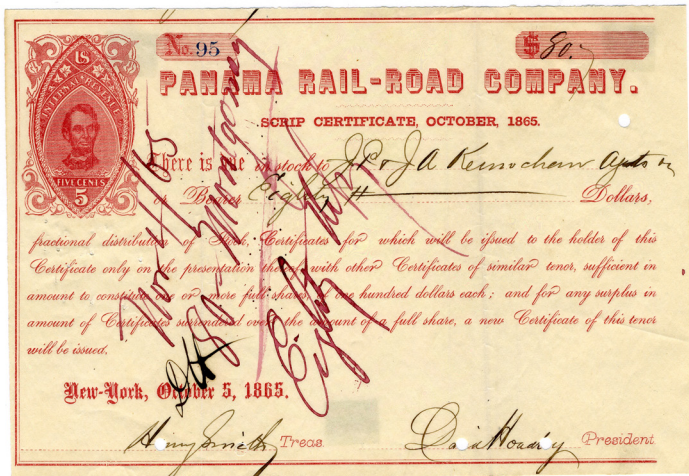 US
INTERNAL REVENUE
FIVE CENTS
5
No. 95
$ 80.
PANAMA RAIL-ROAD COMPANY.
SCRIP CERTIFICATE, OCTOBER, 1865.
There is due in stock to J P & J A Kernochan
or Bearer Eighty Dollars,
fractional distribution of Stock, Certificates for which will be issued to the holder of this
Certificate only on the presentation thereof with other Certificates of similar tenor, sufficient in
amount to constitute one or more full shares of one hundred dollars each; and for any surplus in
amount of Certificates surrendered over the amount of a full share, a new Certificate of this tenor
will be issued.
New-York, October 5, 1865.
Henry Smith Treas.
David Hoadley President
Nov 4/65
Montgomery
Eighty